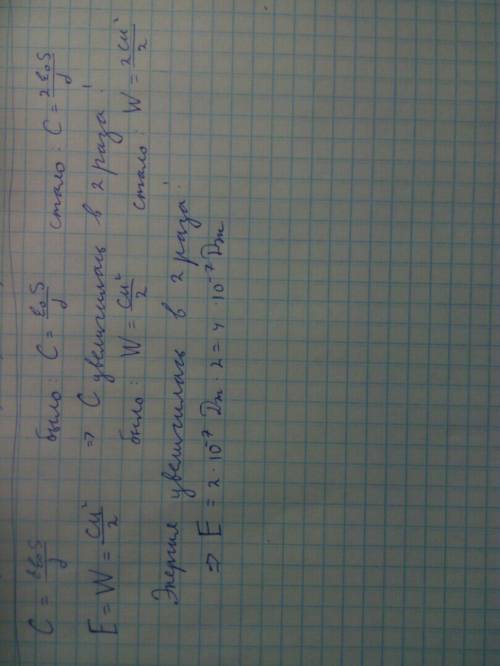 C = εε₀S/d было: C = ε₀S/d стало: C = 2ε₀S/d
E = W = CU²/2 ⇒ C увеличилась в 2 раза!
было: W = CU²/2 стало: W = 2CU²/2
Энергия увеличилась в 2 раза
⇒ E = 2·10⁻⁷ Дж · 2 = 4·10⁻⁷ Дж